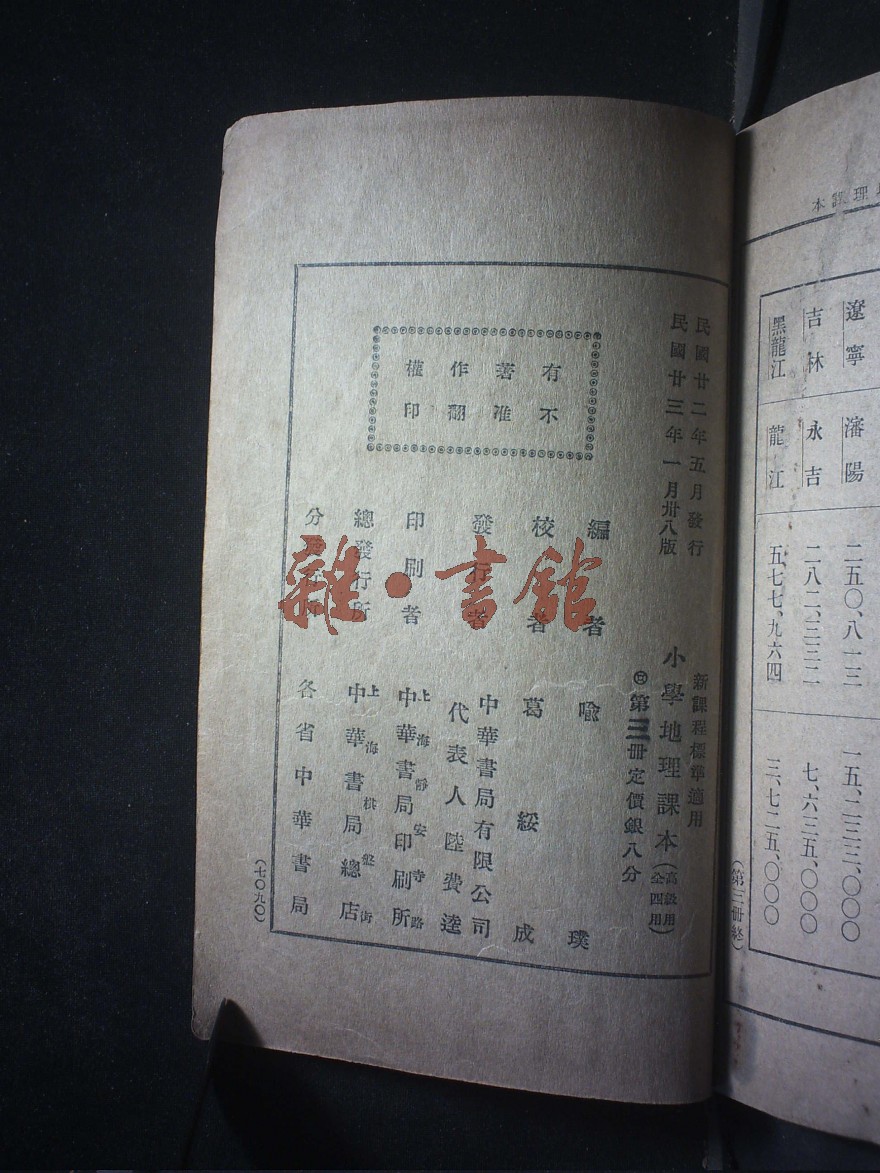 地理課本
遼寧
瀋陽
二五〇、八一三
一五、二三三、〇〇〇
吉林
永吉
二八二、三三二
七、六三五、〇〇〇
黑龍江
龍江
五七七、九六四
三、七二五、〇〇〇
（第三冊終）
民國廿二年五月發行
民國廿三年一月卅八版
新課程標準適用
小學地理課本（高級用 全四冊）
第三冊定價銀八分
有著作權
不准翻印
編者 喻璞
校者 葛綏成
發行者 中華書局有限公司
代表人陸費逵
印刷者 上海靜安寺路
中華書局印刷所
總發行所 上海棋盤街
中華書局總店
分發行所 各省中華書局
（七〇九〇）
雜·書館